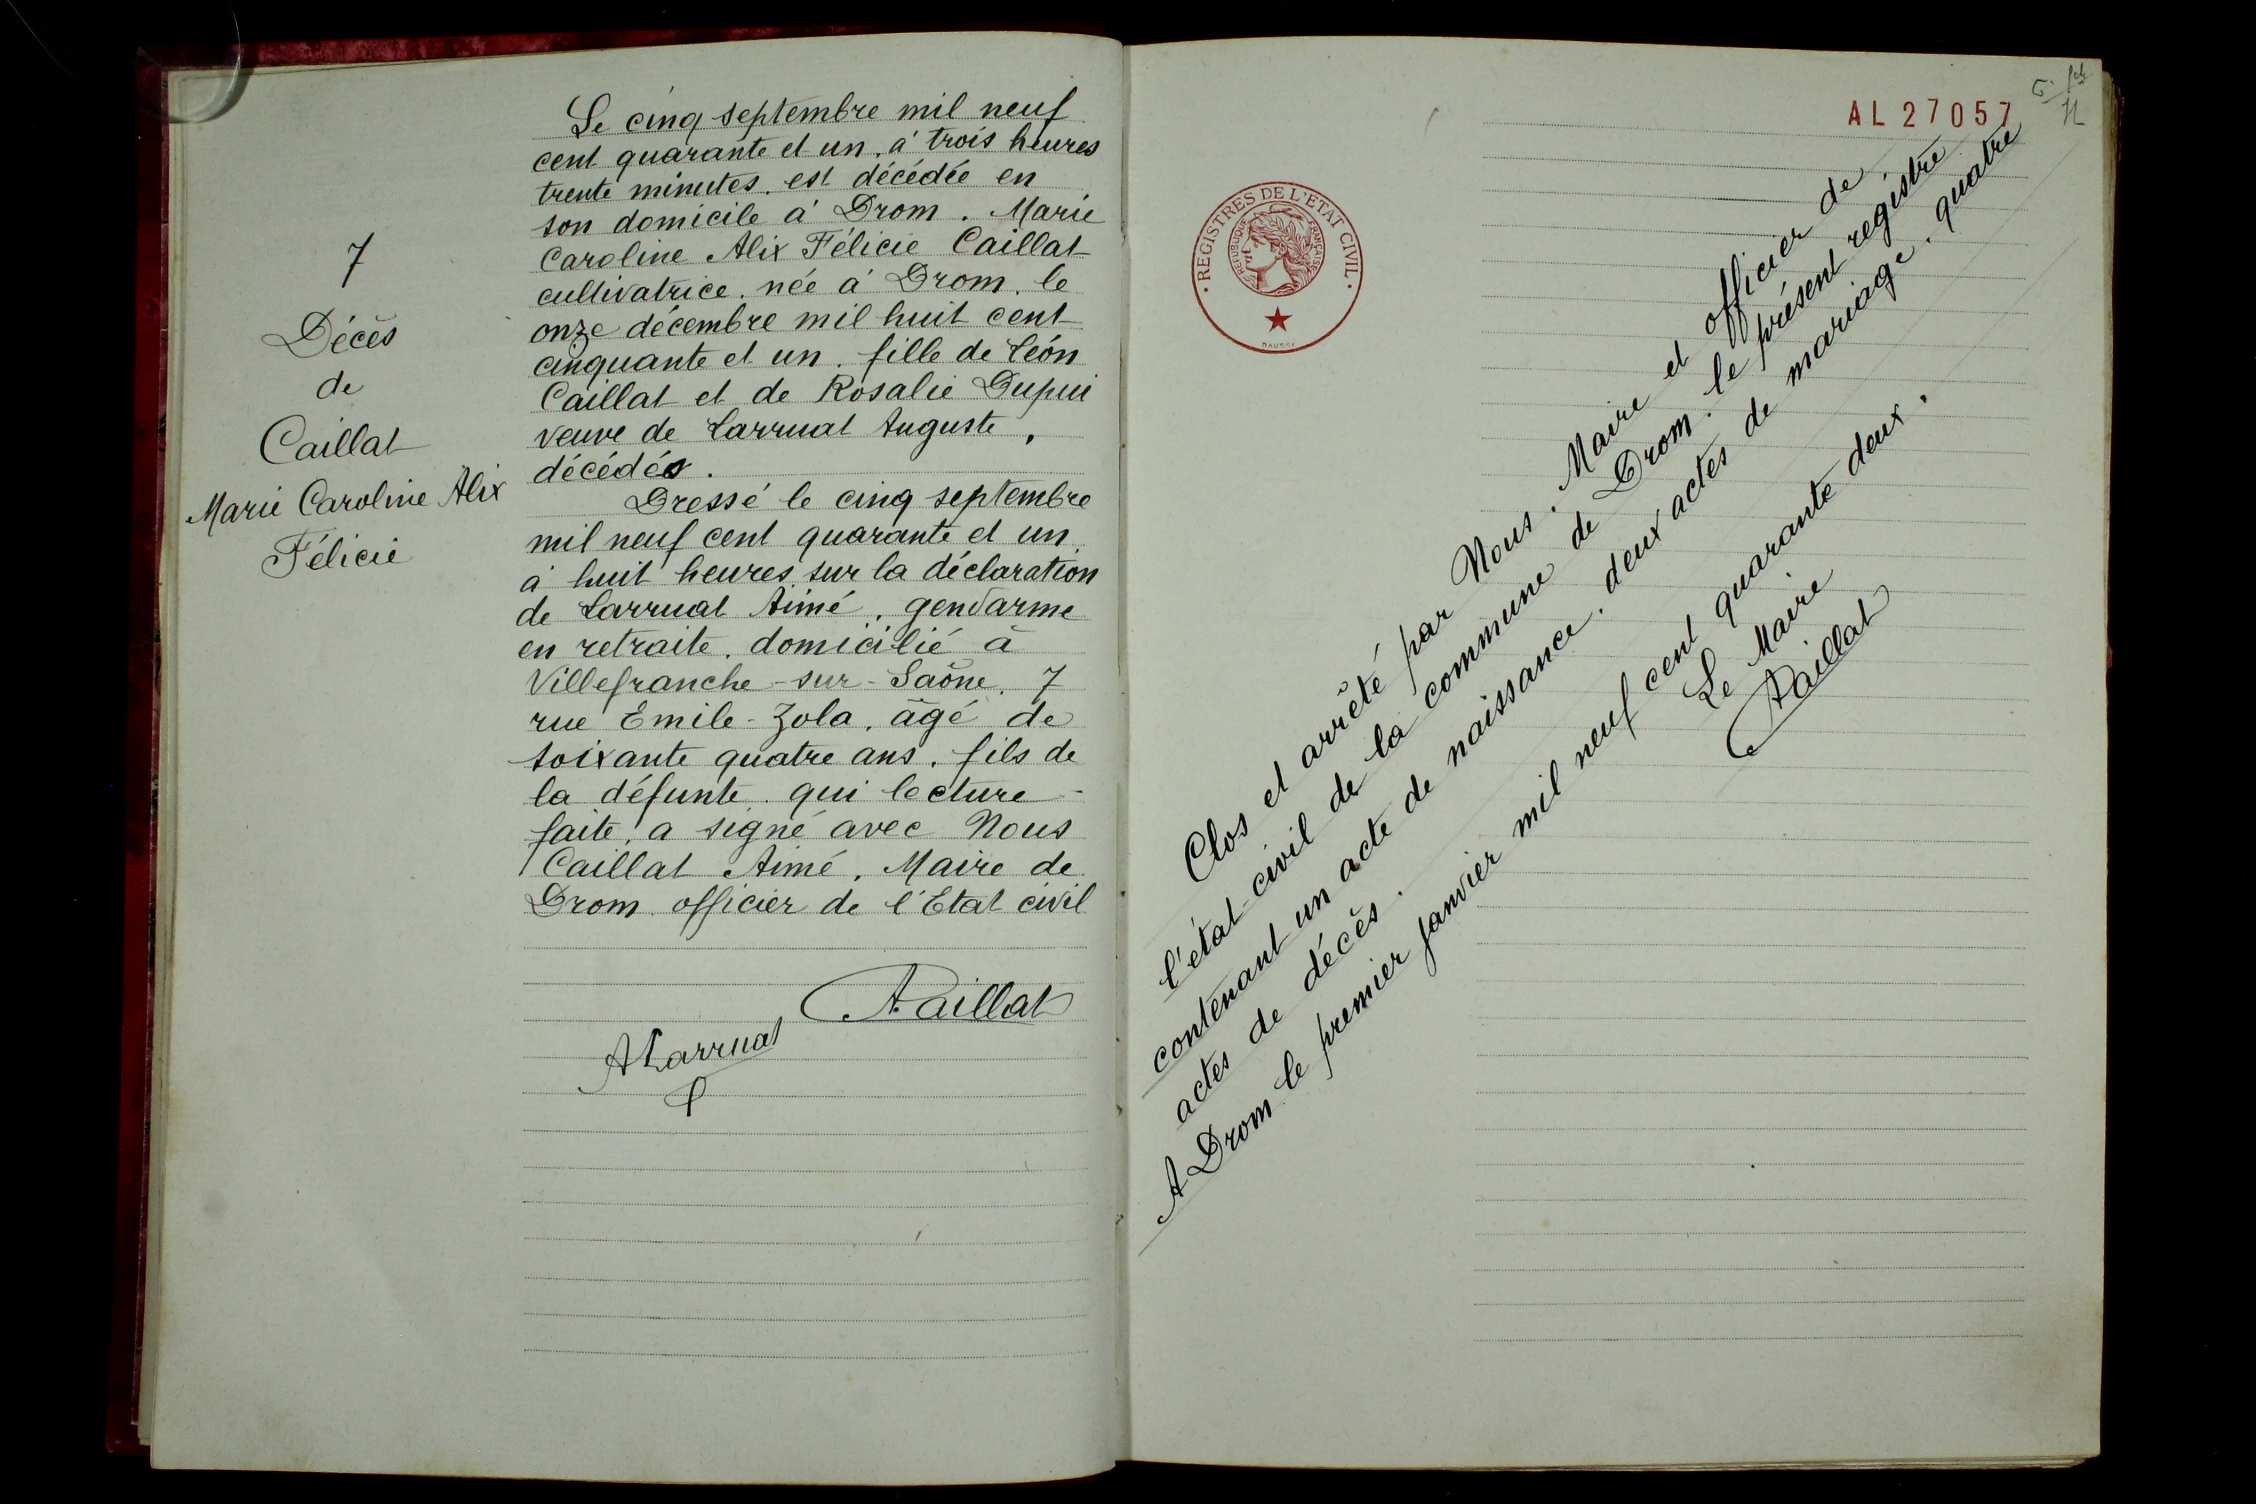 7
Décès
de
Caillat
Marie Caroline Alix
Félicie
Le cinq septembre mil neuf
cent quarante et un, à trois heures
trente minutes. est décédée en
son domicile à Drom. Marie
Caroline Alix Félicie Caillat
cultivatrice. née à Drom. le
onze décembre mil huit cent
cinquante et un. fille de Léon
Caillat et de Rosalie Dupui
veuve de Larruat Auguste,
décédés.
Dressé le cinq septembre
mil neuf cent quarante et un
à huit heures, sur la déclaration
de Larruat Aimé, gendarme
en retraite, domicilié à
Villefranche-sur-Saône, 7
rue Emile-Zola, âgé de
soixante quatre ans, fils de
la défunte, qui lecture
faite, a signé avec Nous
Caillat Aimé, Maire de
Drom. officier de l'Etat civil
A. Caillat
A Larruat
AL 27057
REGISTRES DE L'ETAT CIVIL
REPUBLIQUE FRANÇAISE
Clos et arrêté par Nous. Maire et officier de
l'état-civil de la commune de Drom. le présent registre
contenant un acte de naissance. deux actes de mariage. quatre
actes de décès.
A Drom le premier janvier mil neuf cent quarante deux.
Le Maire
A. Caillat